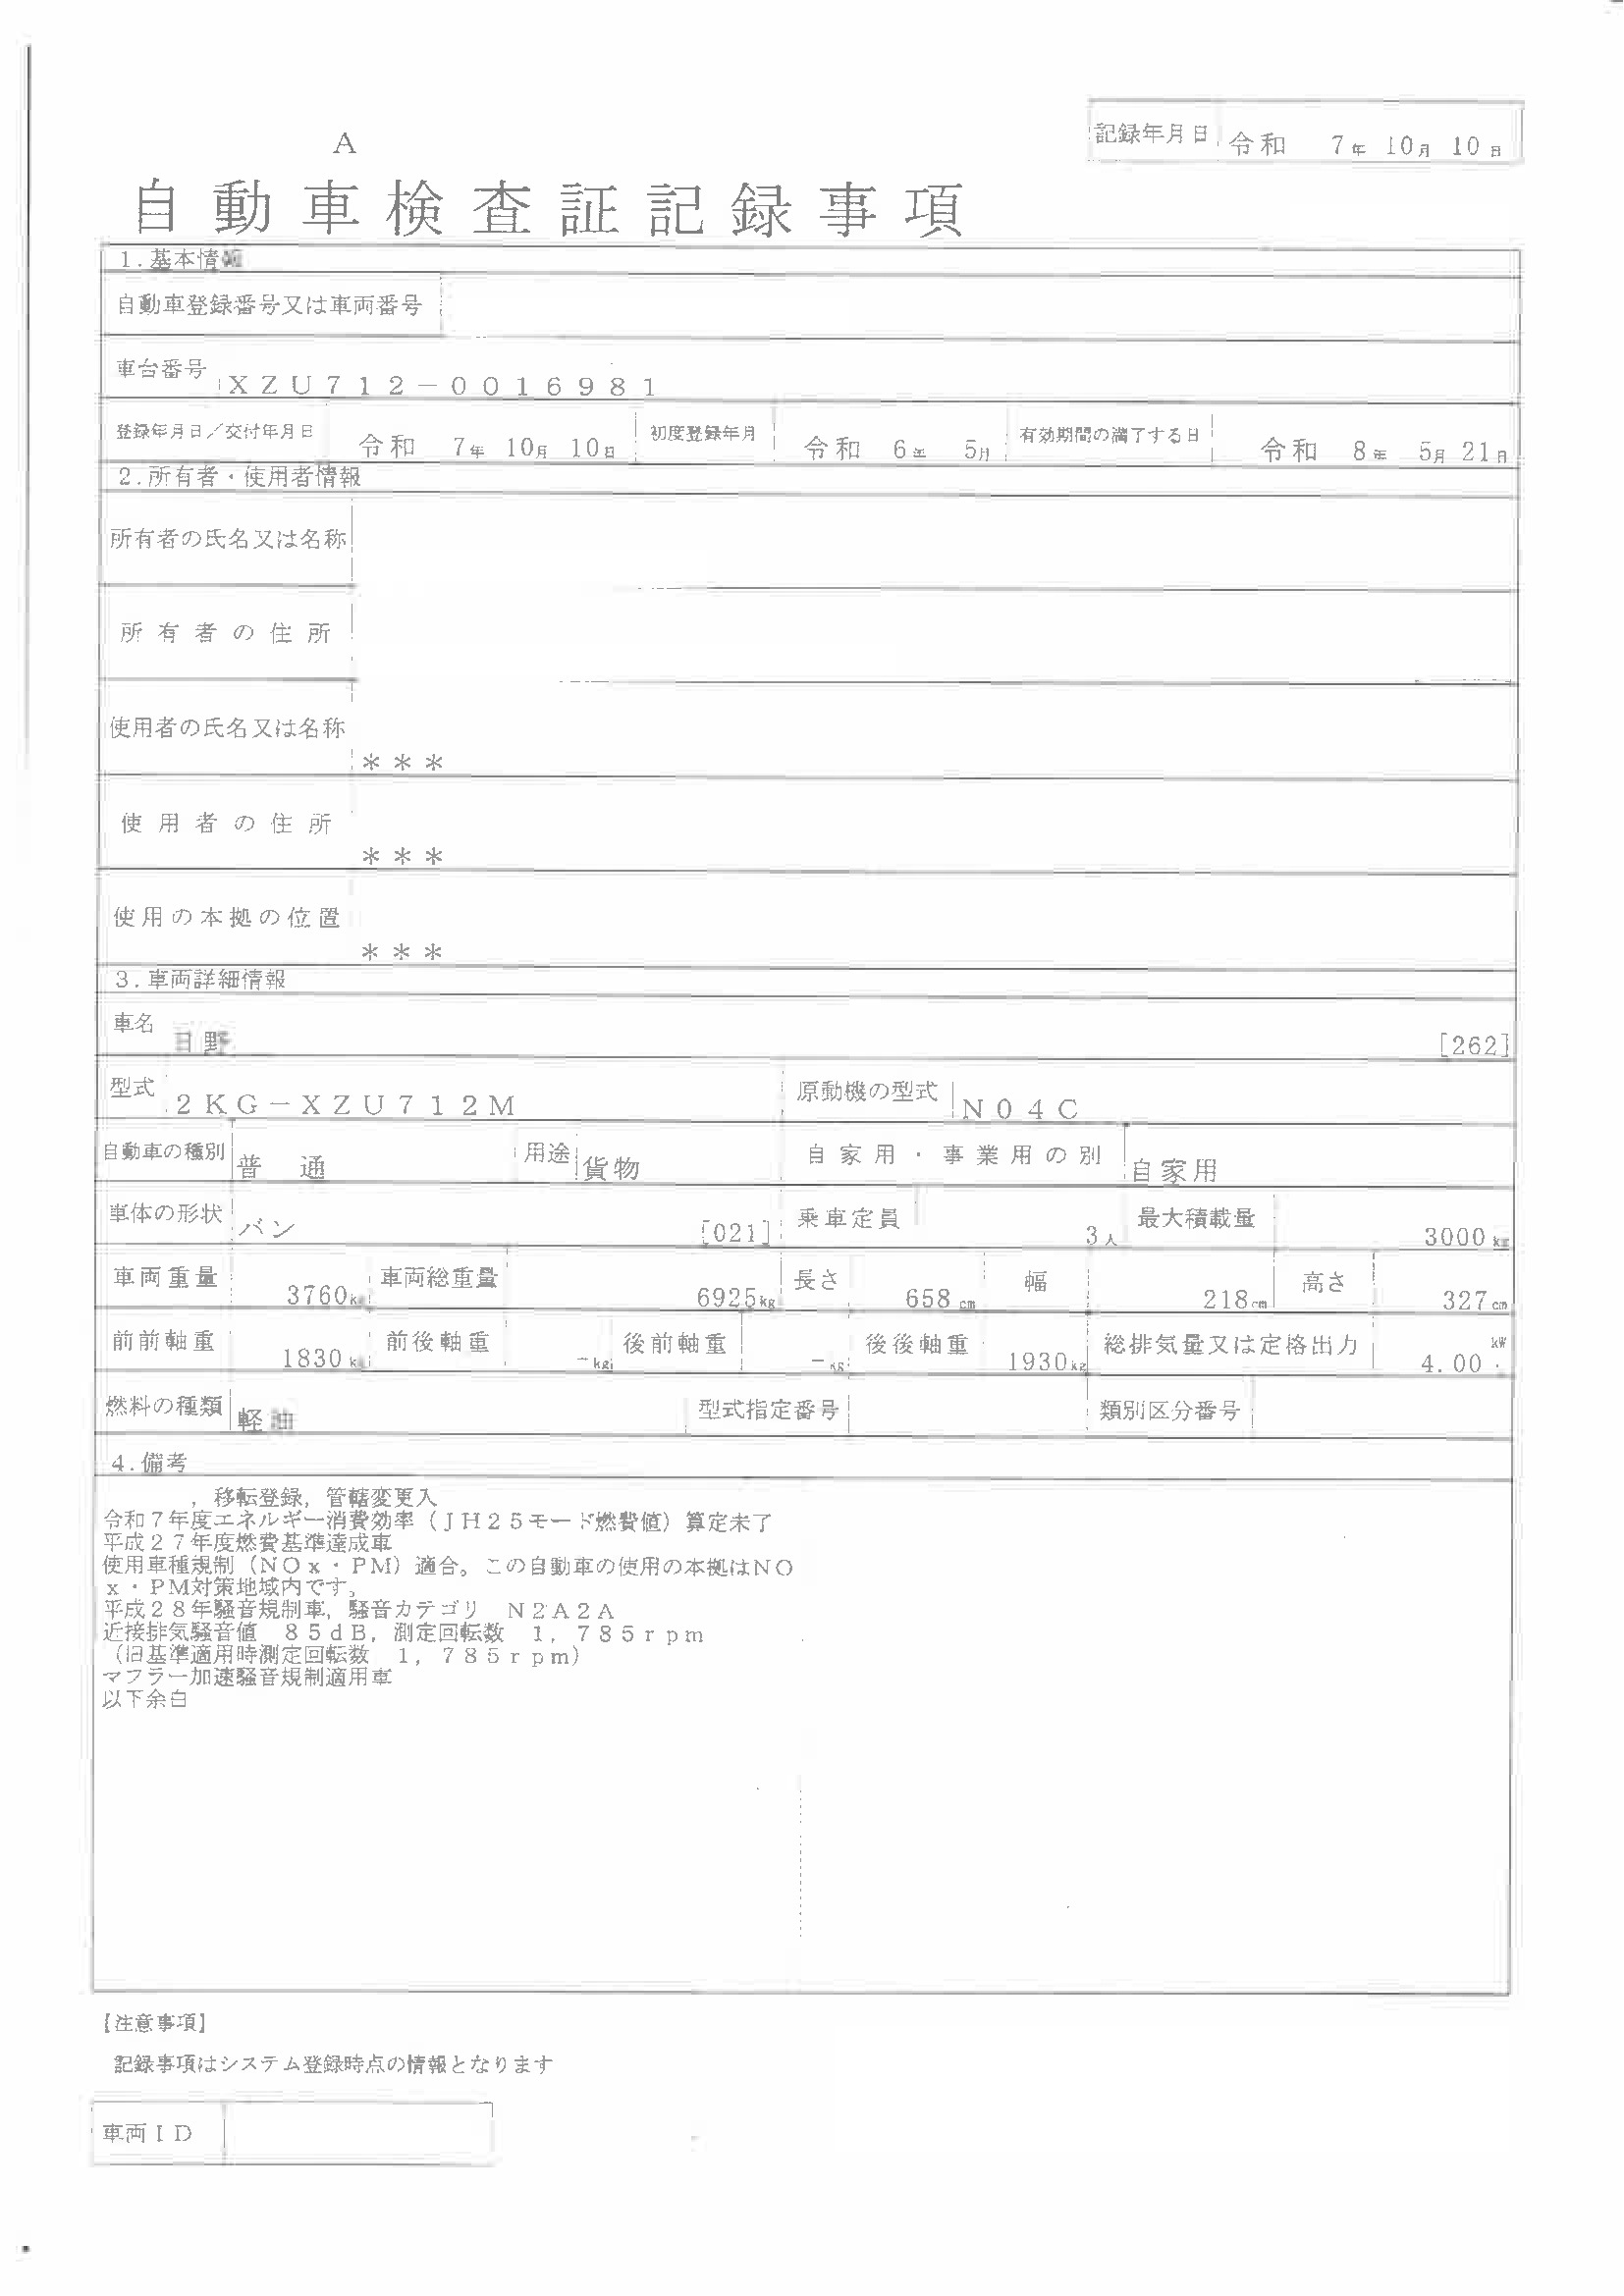 記録年月日 令和 7年 10月 10日
A
自動車検査証記録事項
1.基本情報
自動車登録番号又は車両番号
車台番号 XZU712-0016981
登録年月日/交付年月日 令和 7年 10月 10日 初度登録年月 令和 6年 5月 有効期間の満了する日 令和 8年 5月 21日
2.所有者・使用者情報
所有者の氏名又は名称
所有者の住所
使用者の氏名又は名称 ***
使用者の住所 ***
使用の本拠の位置 ***
3.車両詳細情報
車名 日野 [262]
型式 2KG-XZU712M 原動機の型式 N04C
自動車の種別 普 通 用途 貨物 自家用・事業用の別 自家用
車体の形状 バン [021] 乗車定員 3人 最大積載量 3000kg
車両重量 3760kg 車両総重量 6925kg 長さ 658cm 幅 218cm 高さ 327cm
前前軸重 1830kg 前後軸重 -kg 後前軸重 -kg 後後軸重 1930kg 総排気量又は定格出力 4.00 kW
燃料の種類 軽油 型式指定番号 類別区分番号
4.備考
，移転登録，管轄変更入
令和7年度エネルギー消費効率（JH25モード燃費値）算定未了
平成27年度燃費基準達成車
使用車種規制（NOx・PM）適合。この自動車の使用の本拠はNO
x・PM対策地域内です。
平成28年騒音規制車，騒音カテゴリ　N2A2A
近接排気騒音値　85dB，測定回転数　1，785rpm
（旧基準適用時測定回転数　1，785rpm）
マフラー加速騒音規制適用車
以下余白
【注意事項】
記録事項はシステム登録時点の情報となります
車両ID